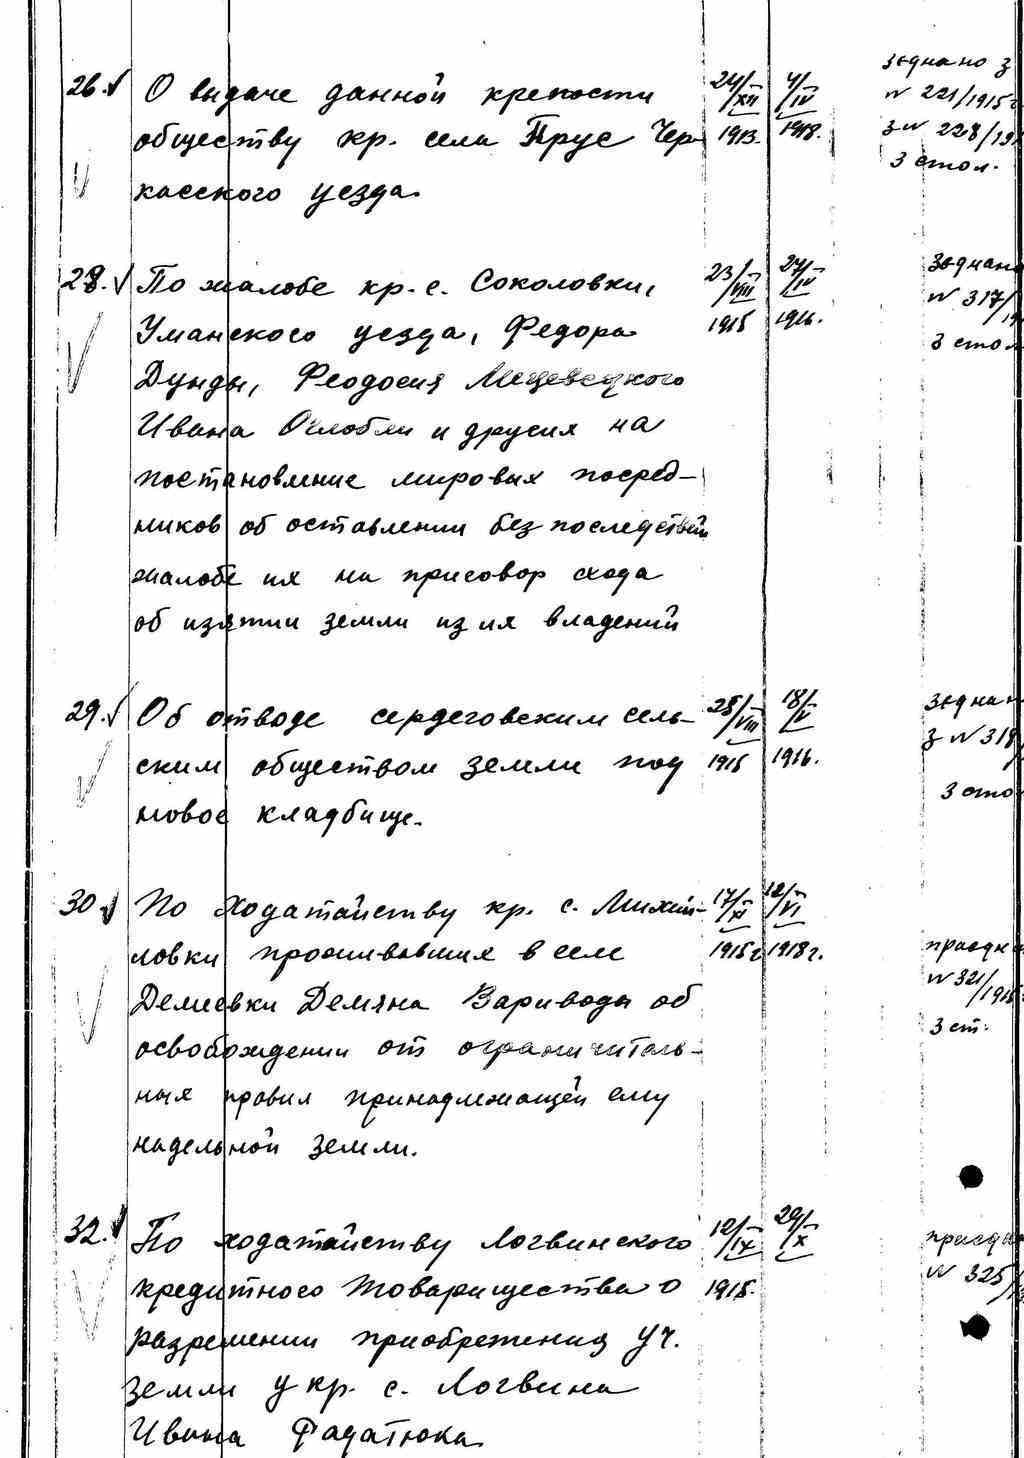 26. О выдаче данной крепости 24/XII 4/IV зєднано з
обществу кр. села Прус Чер- 1913. 1918. № 221/1915 г
касского уезда. з № 228/19
3 стол.
28. По жалобе кр. с. Соколовки, 23/VIII 27/IV Зєднано
Уманского уезда, Федора 1915 1916. № 317/19
Дунды, Феодосия 3 стол
Ивана Оглобли и других на
постановление мировых посред-
ников об оставлении без последствий
жалобе их на приговор схода
об изятии земли из их владений
29. Об отводе сердеговским сель- 28/VIII 18/V зєднан
ским обществом земли под 1915 1916. з № 318/
новое кладбище. 3 сто
30. По ходатайству кр. с. Михай- 17/XI 12/VI
ловки проживавших в селе 1915 г 1918 г. приєдна
Делиевки Демяна Вариводы об № 321/1915
освобождении от ограничитель- 3 ст.
ных правил принадлежащей ему
надельной земли.
32. По ходатайству Логвинского 12/IX 29/X приєдн
кредитного товарищества о 1915. № 325/
разрешении приобретения уч.
земли у кр. с. Логвина
Ивана